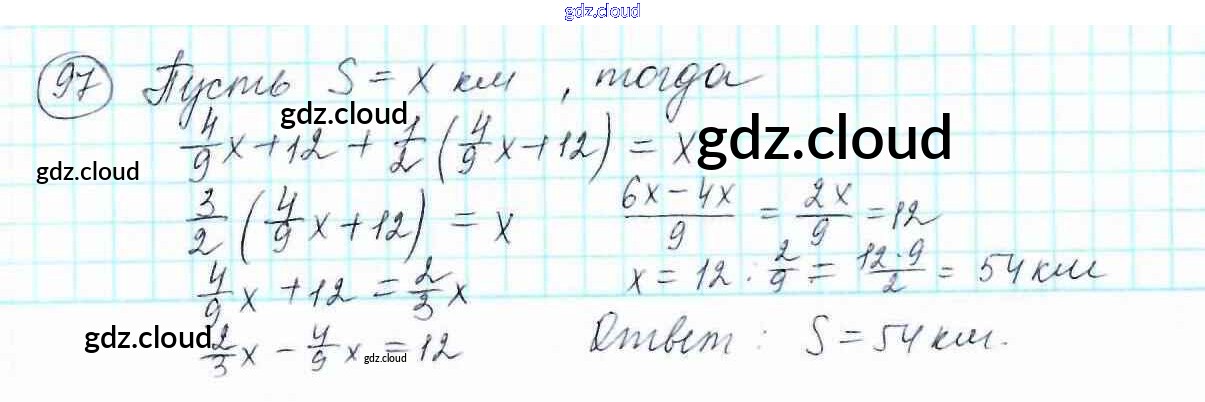 gdz.cloud
97 Пусть S = x км, тогда
gdz.cloud
4/9 x + 12 + 1/2 (4/9 x + 12) = x
gdz.cloud
gdz.cloud
3/2 (4/9 x + 12) = x
4/9 x + 12 = 2/3 x
gdz.cloud
2/3 x - 4/9 x = 12
gdz.cloud
(6x - 4x)/9 = 2x/9 = 12
x = 12 : 2/9 = (12·9)/2 = 54 км
Ответ: S = 54 км.